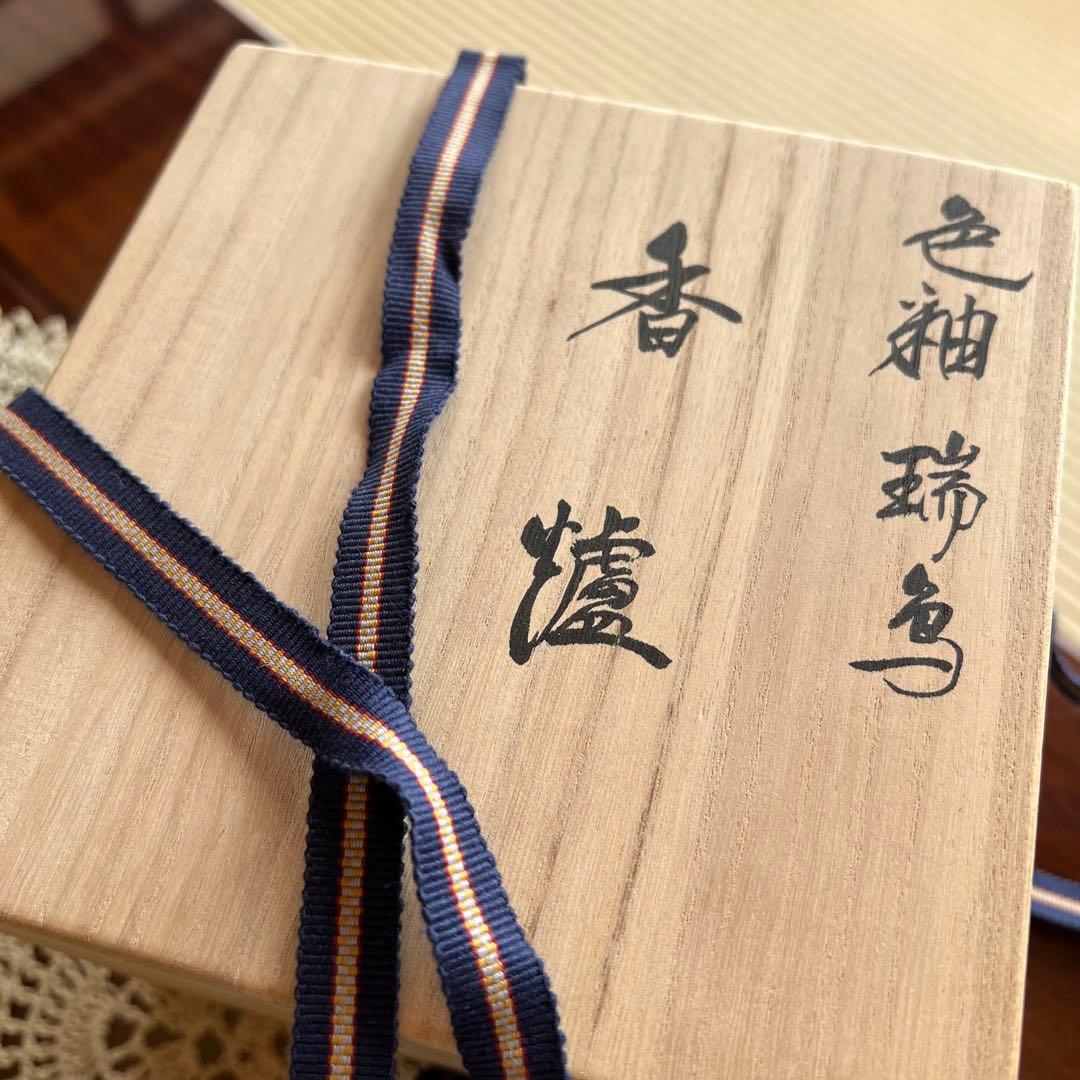 色釉 瑞鳥
香爐